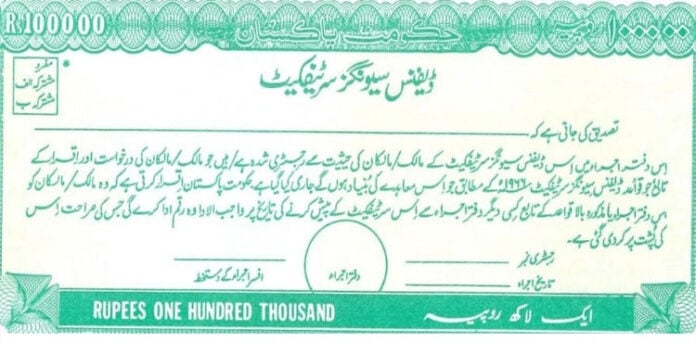 R100000
حکومت پاکستان
100000 روپیہ
ڈیفنس سیونگز سرٹیفکیٹ
*
مفرد
مشترکہ الف
مشترکہ ب
تصدیق کی جاتی ہے کہ
اِس دفتر اجراء میں اِس ڈیفنس سیونگز سرٹیفکیٹ کے مالک/مالکان کی حیثیت سے رجسٹری شدہ ہے/ہیں جو مالک/مالکان کی درخواست اور اقرار کے
تابع جو قواعد ڈیفنس سیونگز سرٹیفکیٹ ۱۹۶۶ء کے مطابق جو اس معاہدے کی بنیاد ہوں گے جاری کیا گیا ہے حکومت پاکستان اقرار کرتی ہے کہ وہ مالک/مالکان کو
اِس دفتر اجراء یا مذکورہ بالا قواعد کے تابع کسی دیگر دفتر اجراء سے اِس سرٹیفکیٹ کے پیش کرنے کی تاریخ پر واجب الادا وہ رقم ادا کرے گی جس کی صراحت اس
کی پشت پر کر دی گئی ہے۔
رجسٹری نمبر
تاریخ اجراء
دفتر اجراء
افسر اجراء کے دستخط
RUPEES ONE HUNDRED THOUSAND
ایک لاکھ روپیہ